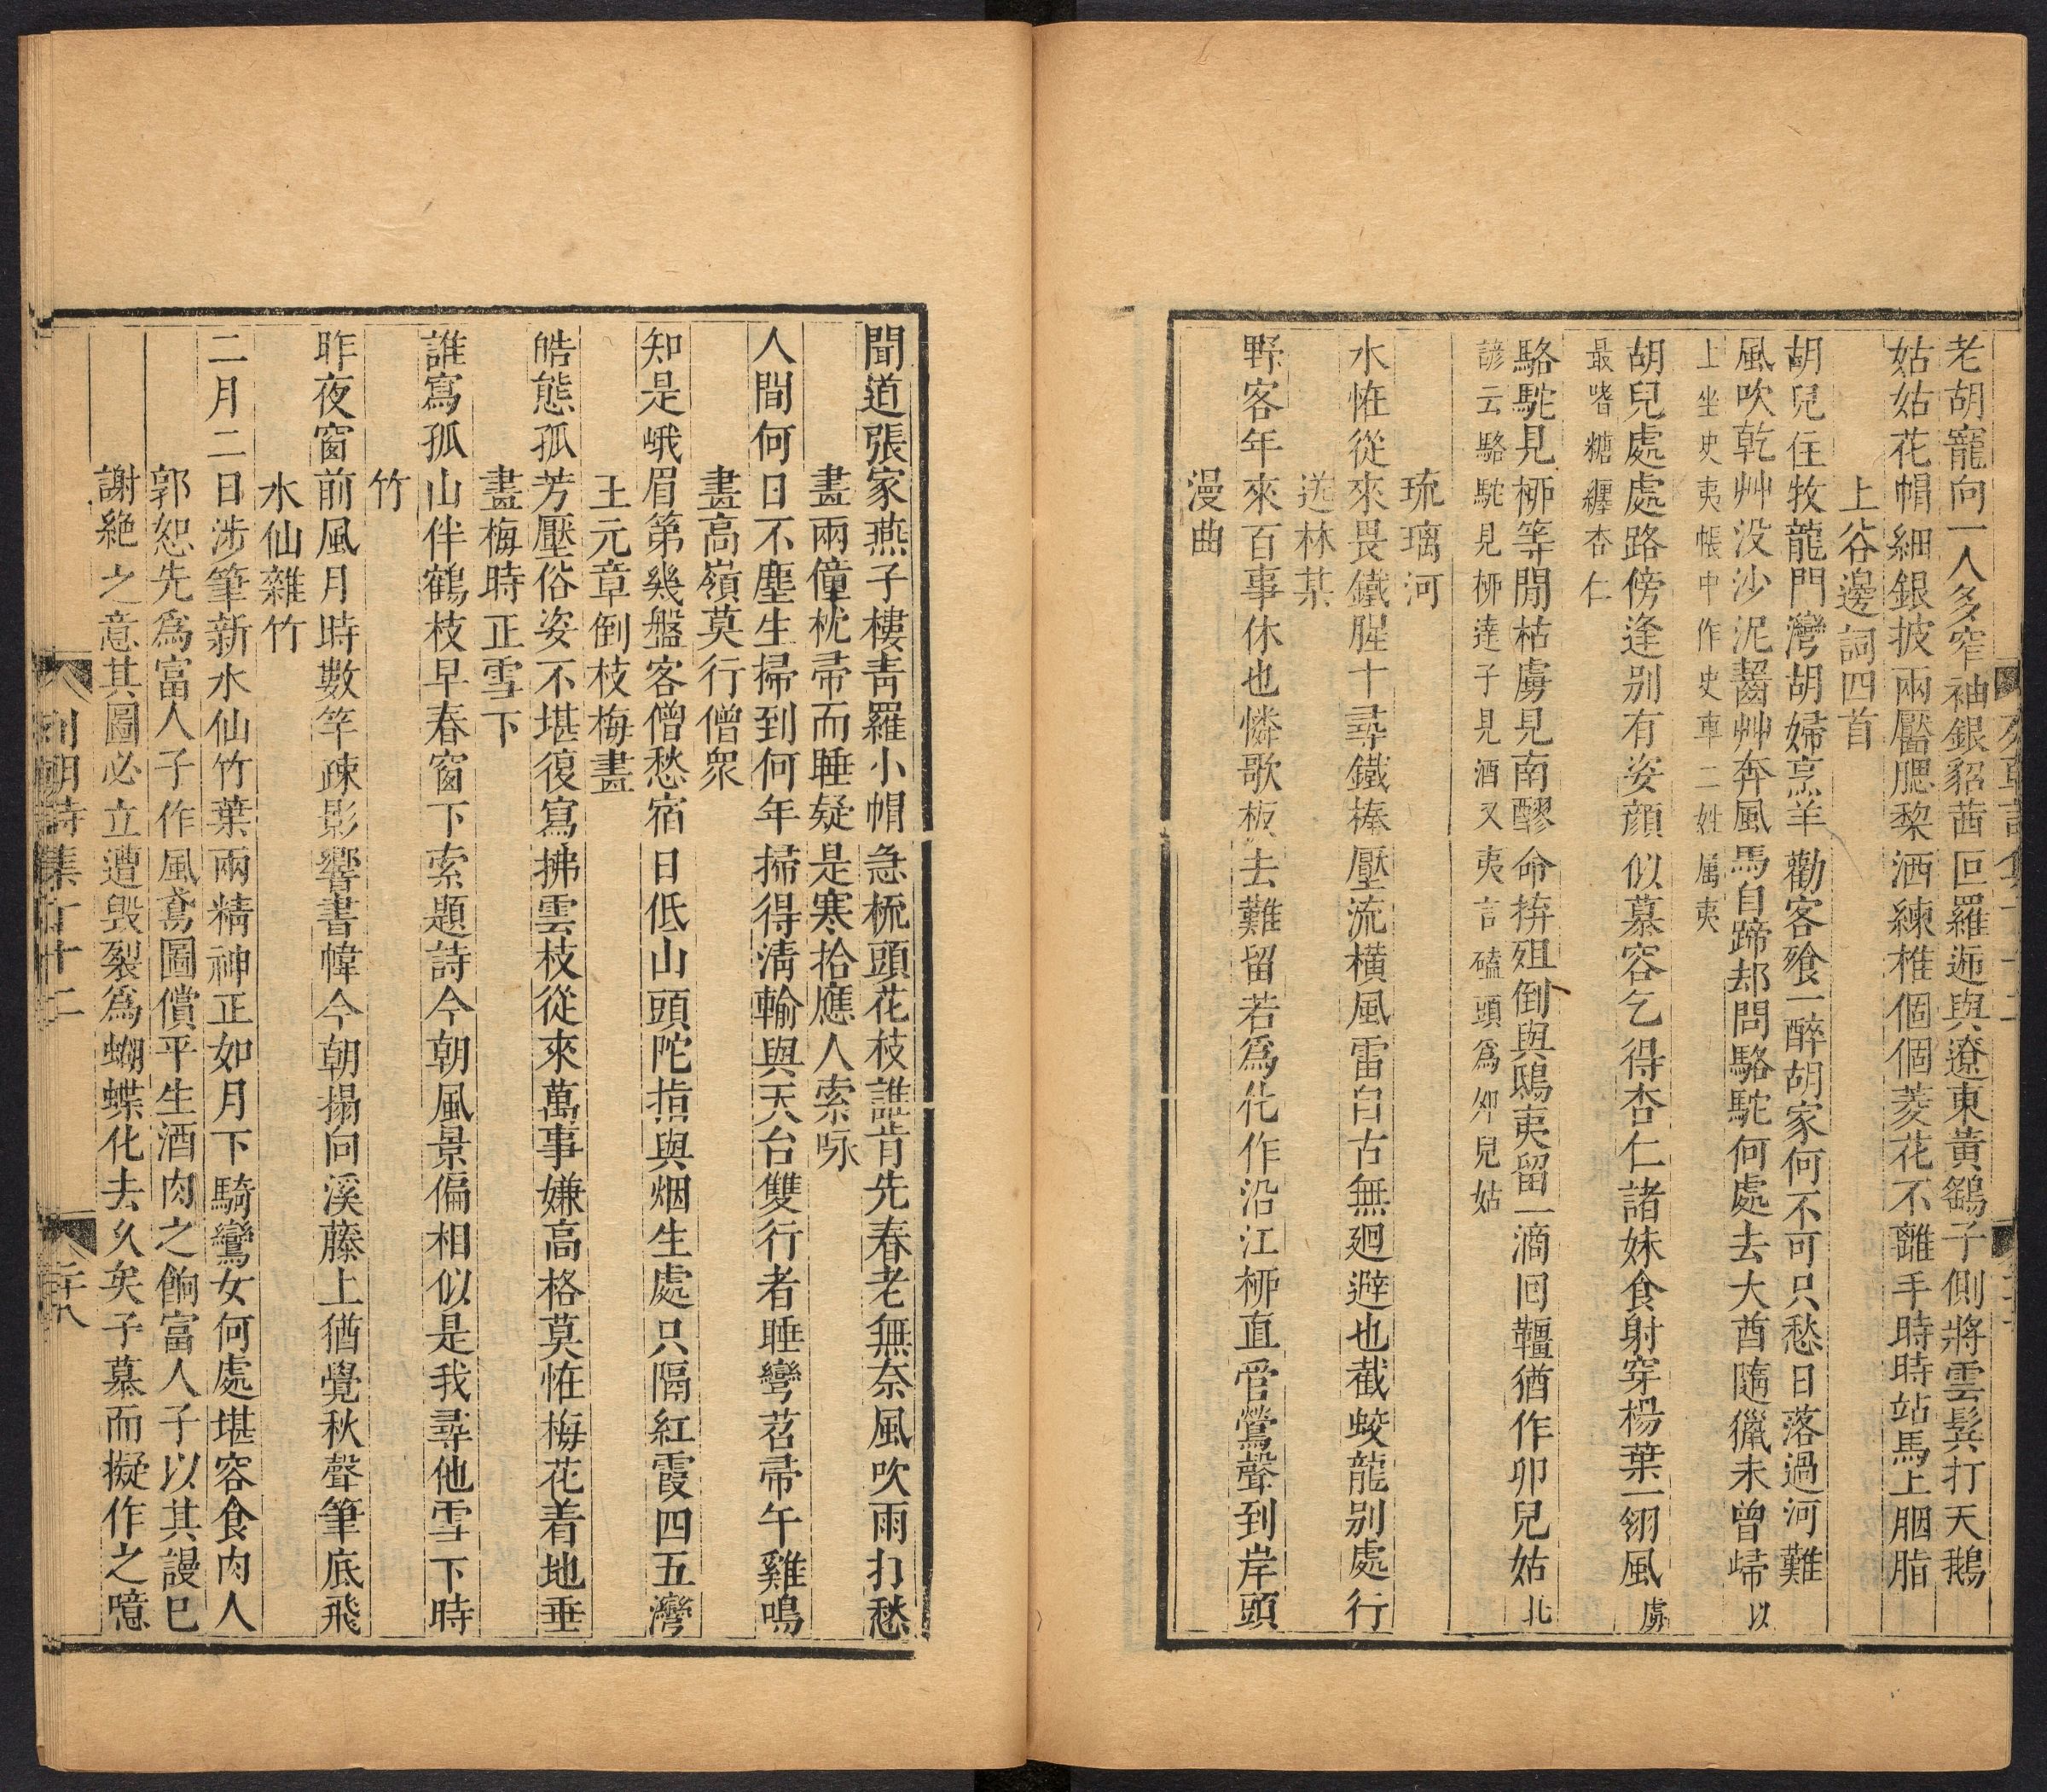 老胡寵向一人多窄袖銀貂茜叵羅迊與遼東黃鷂子側將雲鬂打天鵝
姑姑花帽細銀披兩靨腮棃洒練椎個個菱花不離手時時站馬上胭脂
上谷邊詞四首
胡兒住牧龍門灣胡婦烹羊勸客飱一醉胡家何不可只愁日落過河難
風吹乾艸没沙泥齧艸奔風馬自蹄却問駱駝何處去大酋隨獵未曾㱕以
上坐史夷帳中作史車二姓属夷
胡兒處處路傍逢别有姿顏似慕容乞得杏仁諸妹食射穿楊葉一翎風虜
最嗜糖纒杏仁
駱駝見桺等閒枯虜見南醪命拚殂倒與鴟夷留一滴囘韁猶作卯兒姑北
諺云駱駝見桺達子見酒又夷言磕頭爲卯兒姑
琉璃河
水恠從來畏鐵腥十尋鐵榛壓流橫風雷自古無廻避也截蛟龍别處行
送林某
野客年來百事休也憐歌板去難留若爲化作沿江桺直管鶯聲到岸頭
漫曲
聞道張家燕子樓靑羅小帽急梳頭花枝誰肯先春老無奈風吹雨打愁
畫兩僮枕帚而睡疑是寒拾應人索咏
人間何日不塵生掃到何年掃得淸輸與天台雙行者睡彎苕帚午雞鳴
畫高嶺莫行僧衆
知是峨眉第幾盤客僧愁宿日低山頭陀指與烟生處只隔紅霞四五灣
王元章倒枝梅畫
皓態孤芳壓俗姿不堪復寫拂雲枝從來萬事嫌高格莫恠梅花着地垂
畫梅時正雪下
誰寫孤山伴鶴枝早春窗下索題詩今朝風景偏相似是我尋他雪下時
竹
昨夜窗前風月時數竿疎影響書幃今朝搨向溪藤上猶覺秋聲筆底飛
水仙雜竹
二月二日涉筆新水仙竹葉兩精神正如月下騎鸞女何處堪容食肉人
郭恕先爲富人子作風鳶圖償平生酒肉之餉富人子以其謾已
謝絶之意其圖必立遭毁裂爲蝴蝶化去久矣予慕而擬作之噫
列朝詩集丁十二
二十八